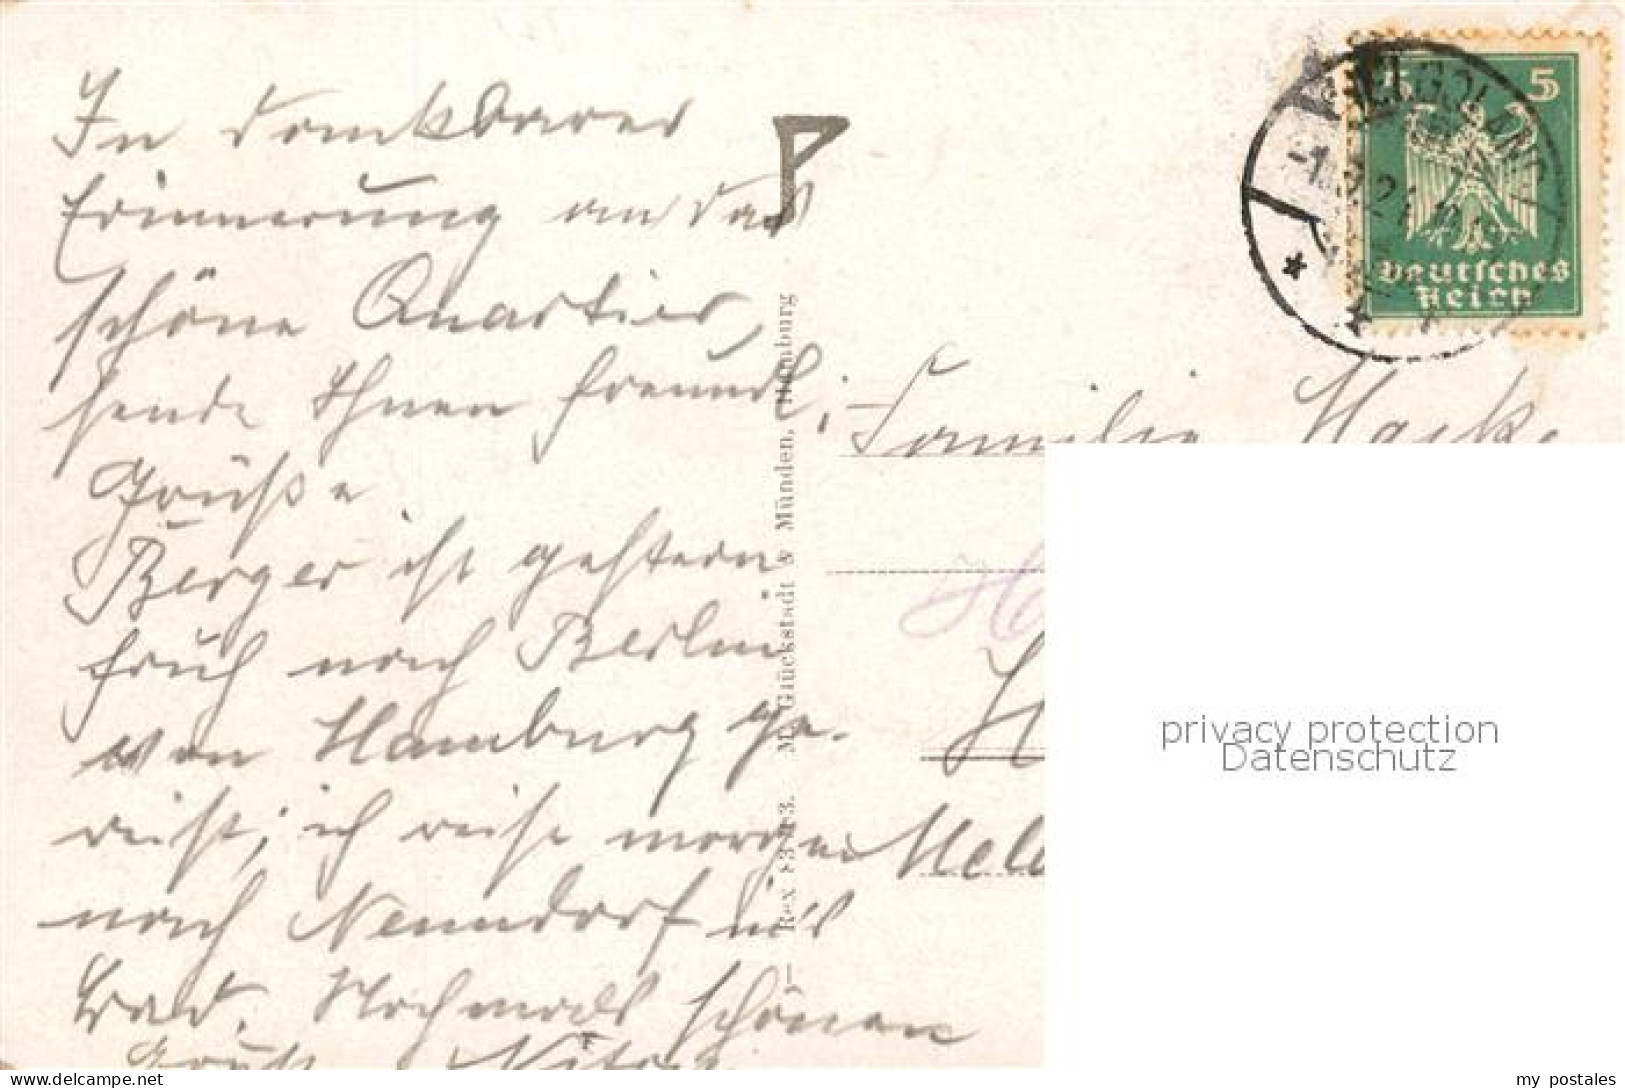 In dankbarer
Erinnerung an das
schöne Quartier,
sende Ihnen freundl.
Grüße
Berger ist gestern
früh nach Berlin
von Hamburg ge-
reist; ich reise morgen
nach Nenndorf ins
Bad. Nochmals schönen
Gruß
P
— Rex M. Glückstadt & Münden, Hamburg
HELGOLAND
5 5
Deutsches
Reich
Familie
privacy protection
Datenschutz
delcampe.net
my_postales